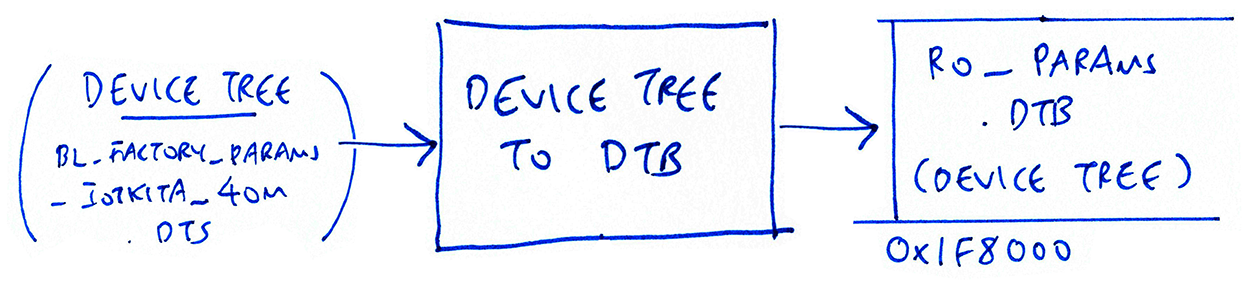 DEVICE TREE
BL_FACTORY_PARAMS
_IOTKITA_40M
.DTS
DEVICE TREE
TO DTB
RO_PARAMS
.DTB
(DEVICE TREE)
0x1F8000